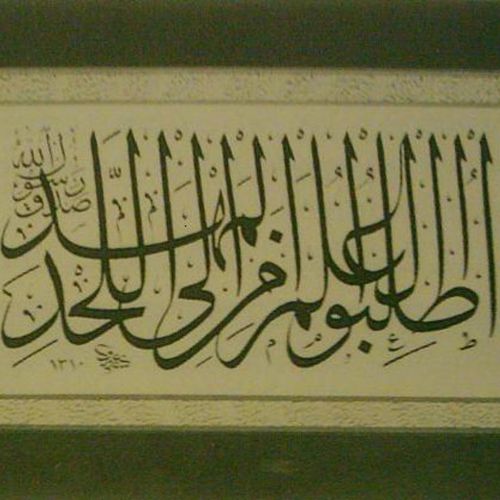 اطلبوا العلم من المهد إلى اللحد
صدق رسول الله
١٣١٠